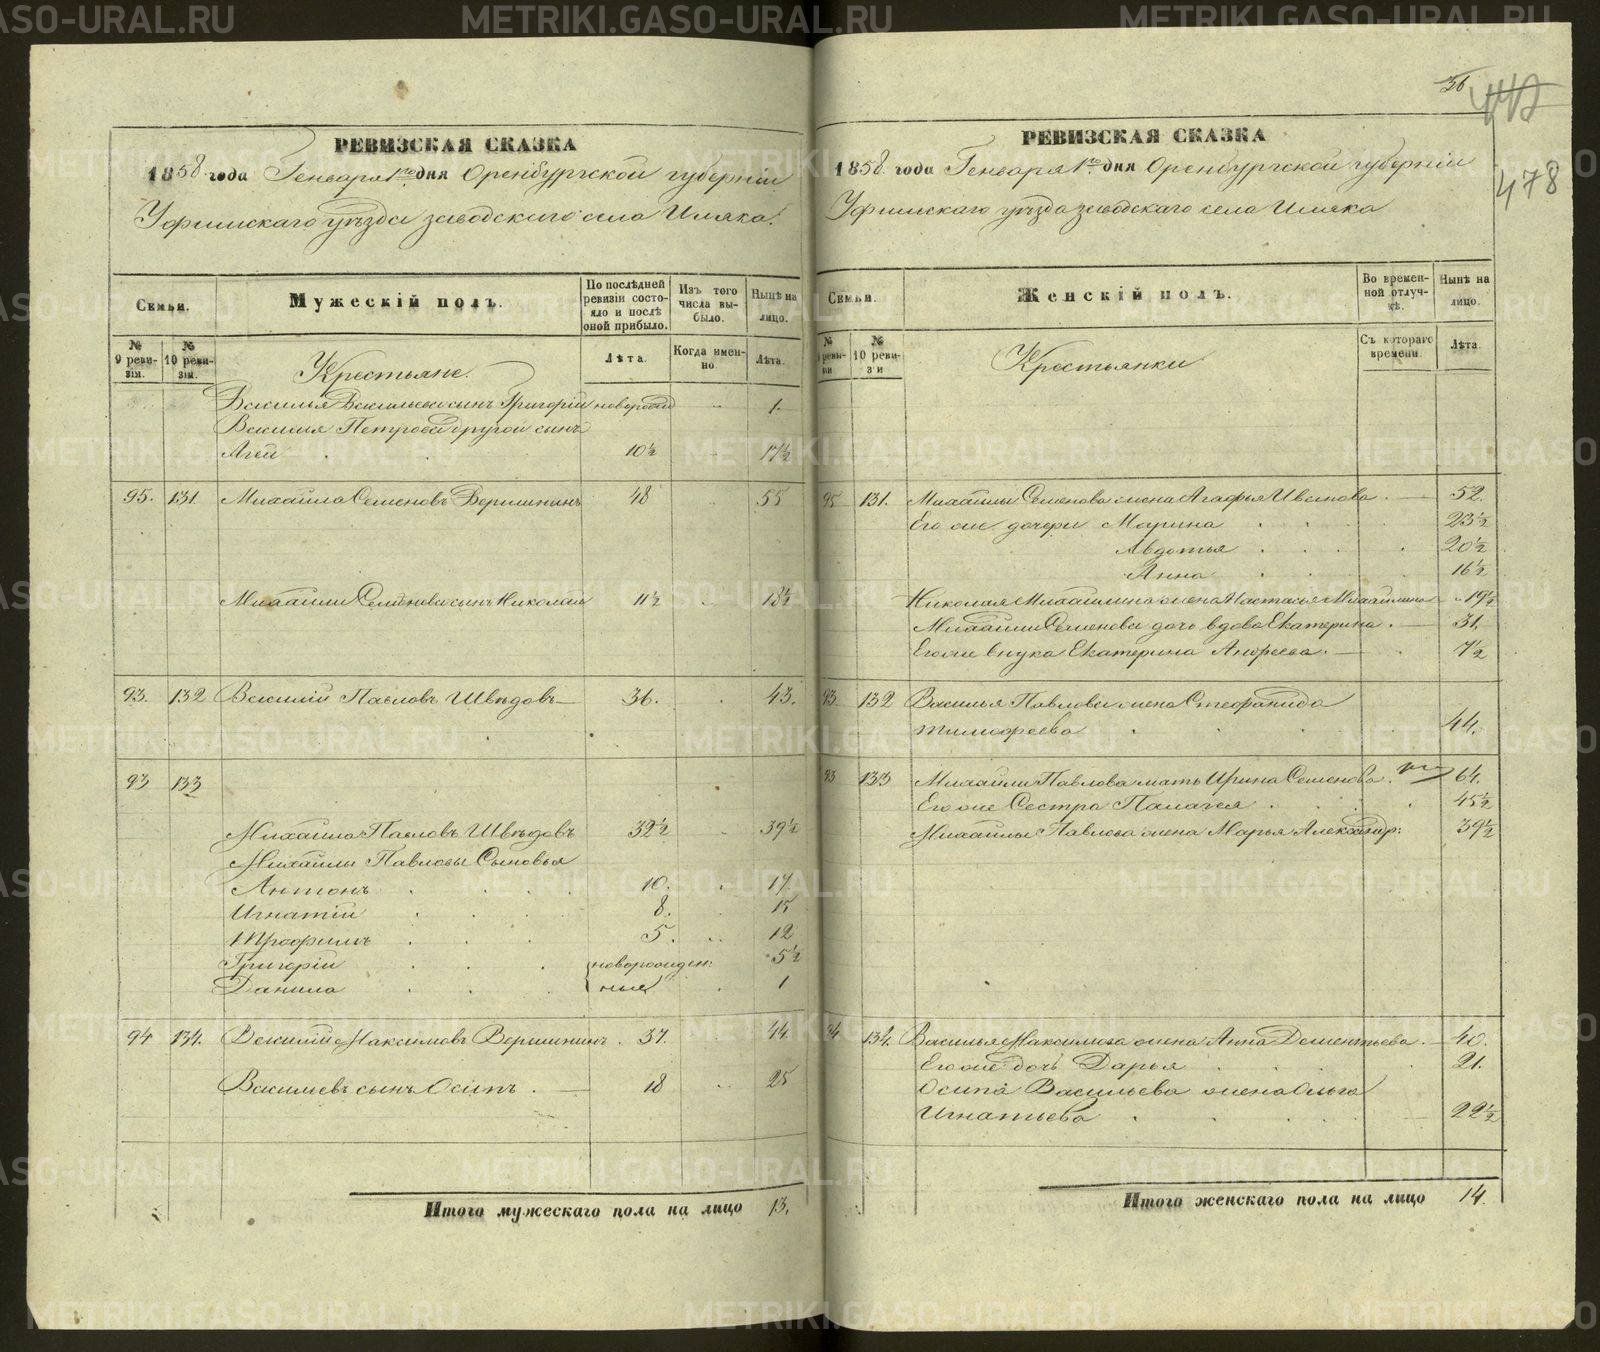 36
442
478
РЕВИЗСКАЯ СКАЗКА
1858 года Генваря 1го дня Оренбургской губерніи
Уфимскаго уѣзда заводскаго села Иляка.
Семьи.
Мужескій полъ.
По послѣдней ревизіи состояло и послѣ оной прибыло.
Изъ того числа выбыло.
Нынѣ на лицо.
№ 9 ревизія.
№ 10 ревизія.
Крестьяне.
Лѣта.
Когда именно
Лѣта.
Василья Васильева сынъ Григорій новорожд 1.
Василия Петрова другой сынъ
Агей 10½ 17½
95. 131. Михайла Семеновъ Вершининъ 48 55
Михайлы Семенова сынъ Николай 11½ 18½
93. 132 Василій Павловъ Шведовъ 36. 43.
93 133
Михайла Павловъ Шведовъ 32½ 39½
Михайлы Павловы Сыновья
Антонъ 10. 17.
Игнатій 8. 15
Трофимъ 5. 12
Григорій новорожден: 5½
Данила ные 1
94 134. Василій Максимовъ Вершининъ. 37. 44.
Васильевъ сынъ Осипъ. 18 25
Итого мужескаго пола на лицо 13.
РЕВИЗСКАЯ СКАЗКА
1858 года Генваря 1го дня Оренбургской губерніи
Уфимскаго уѣзда заводскаго села Иляка
Семьи.
Женскій полъ.
Во временной отлучкѣ.
Нынѣ на лицо.
№ 9 ревизіи
№ 10 ревизи
Крестьянки
Съ котораго времени
Лѣта.
95 131. Михайлы Семенова жена Агафья Иванова 52.
Его же дочери Марина 23½
Авдотья 20½
Анна 16½
Николая Михайлина жена Настасья Михайлина 19½
Михайлы Семенова дочь вдова Екатерина 31.
Его же внука Екатерина Андреева. 7½
93 132 Василья Павлова жена Стефанида
Тимофеева 44.
93 133 Михайлы Павлова мать Ирина Семенова. 64.
Его же Сестра Палагея 45½
Михайлы Павлова жена Марья Александр: 39½
94 134. Василья Максимова жена Анна Дементьева. 40.
Его же дочь Дарья 21.
Осипа Васильева жена Ольга
Игнатьева 22½
Итого женскаго пола на лицо 14.
METRIKI.GASO-URAL.RU